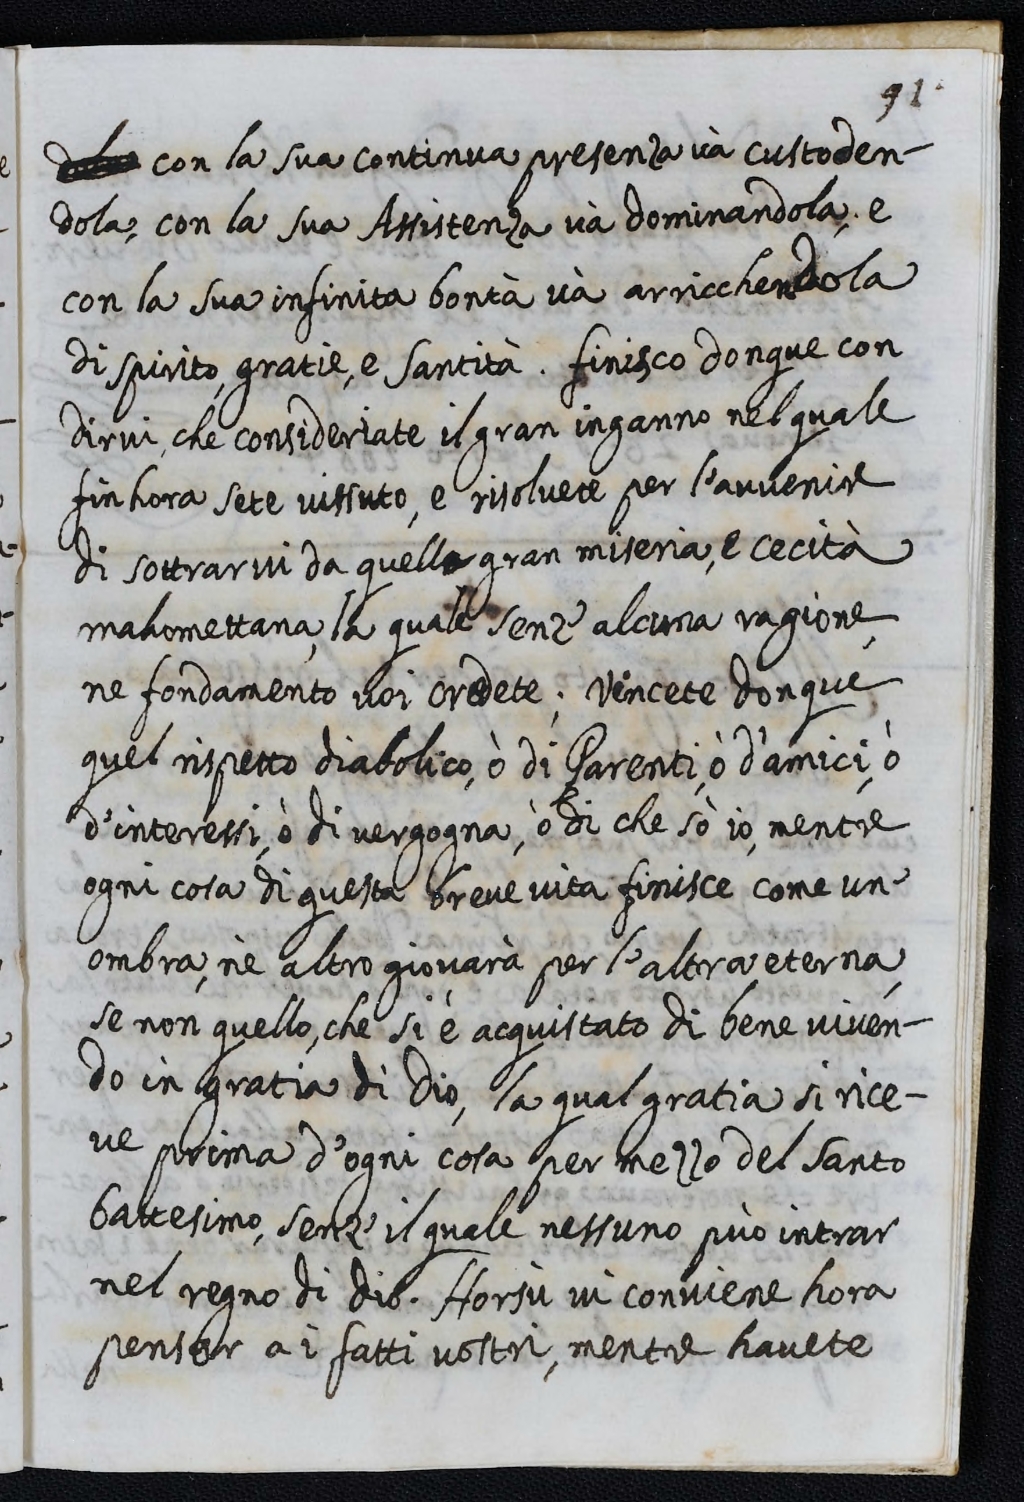 91
con la sua continua presenza và custoden-
dola; con la sua Assistenza và dominandola; e
con la sua infinita bontà và arricchendola
di spirito, gratie, e santità. finisco donque con
dirvi, che consideriate il gran inganno nel quale
fin hora sete vissuto, e risolvete per l'avvenire
di sottrarvi da quella gran miseria, e cecità
mahomettana, la quale senz' alcuna ragione,
ne fondamento voi credete; Vincete donque
quel rispetto diabolico, ò di Parenti, ò d'amici, ò
d'interessi, ò di vergogna, ò di che sò io, mentre
ogni cosa di questa breve vita finisce come un'
ombra, nè altro giovarà per l'altra eterna,
se non quello, che si è acquistato di bene viven-
do in gratia di Dio, la qual gratia si rice-
ve prima d'ogni cosa per mezzo del Santo
battesimo, senz' il quale nessuno può intrar
nel regno di dio. Horsù vi conviene hora
pensar a i fatti vostri, mentre havete